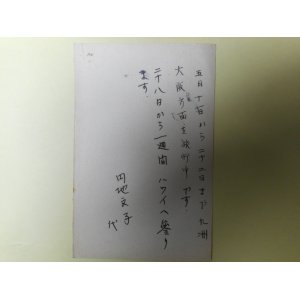 五月十五日から二十二日まで九洲
大阪方面を旅行中です。
二十八日から一週間ハワイへ参り
ます。
円地文子
代